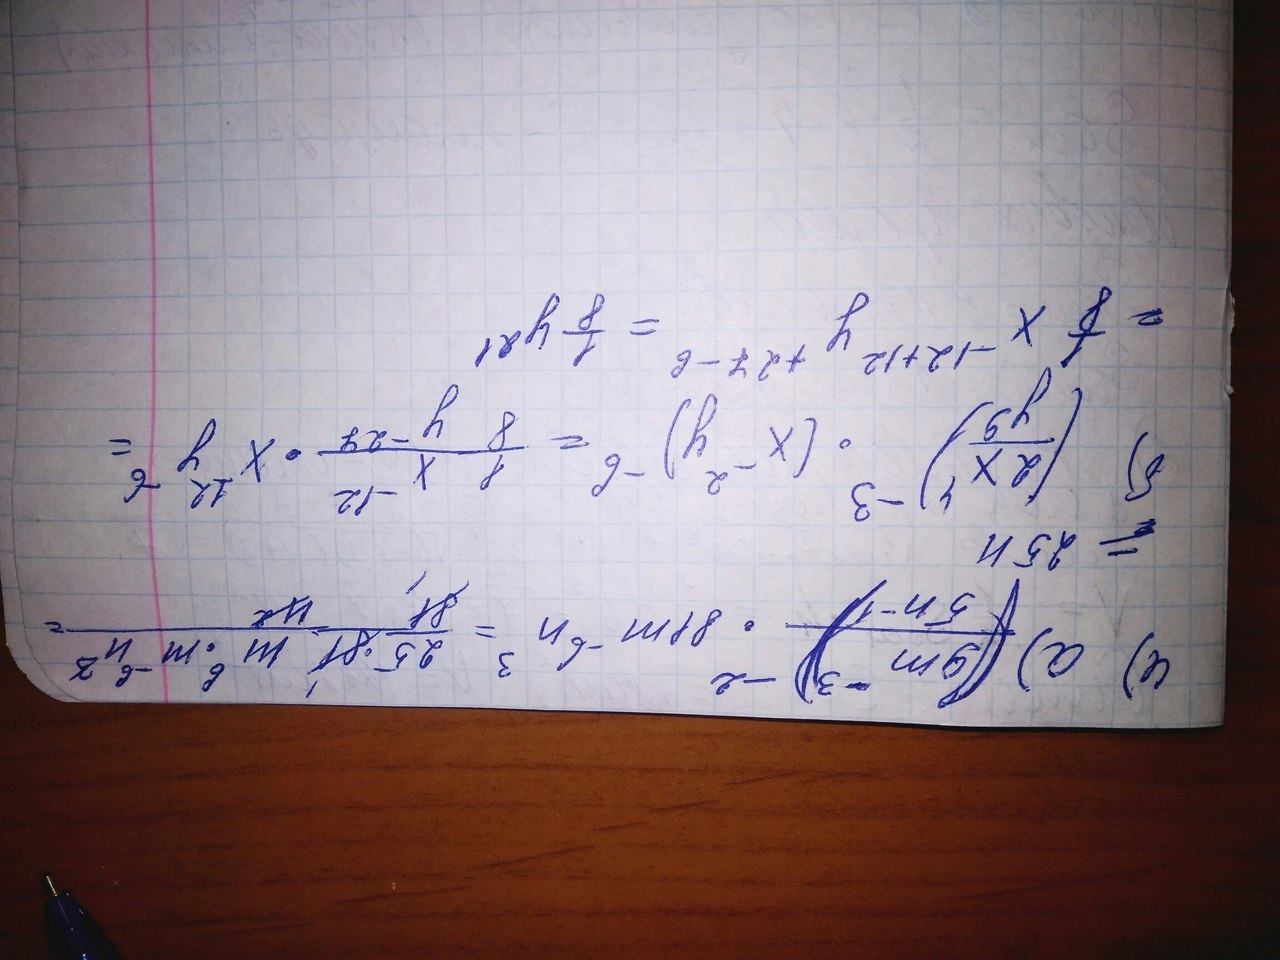 4) а) (9m⁻³/5n⁻¹)⁻² · 81m⁻⁶n³ = 25·81·m⁶·m⁻⁶n³/81n² =
= 25n
б) (2x⁴/y⁹)⁻³ · (x⁻²y)⁻⁶ = 1x⁻¹²/8y⁻²⁷ · x¹²y⁻⁶ =
= 1/8 x⁻¹²⁺¹² y⁺²⁷⁻⁶ = 1/8 y²¹